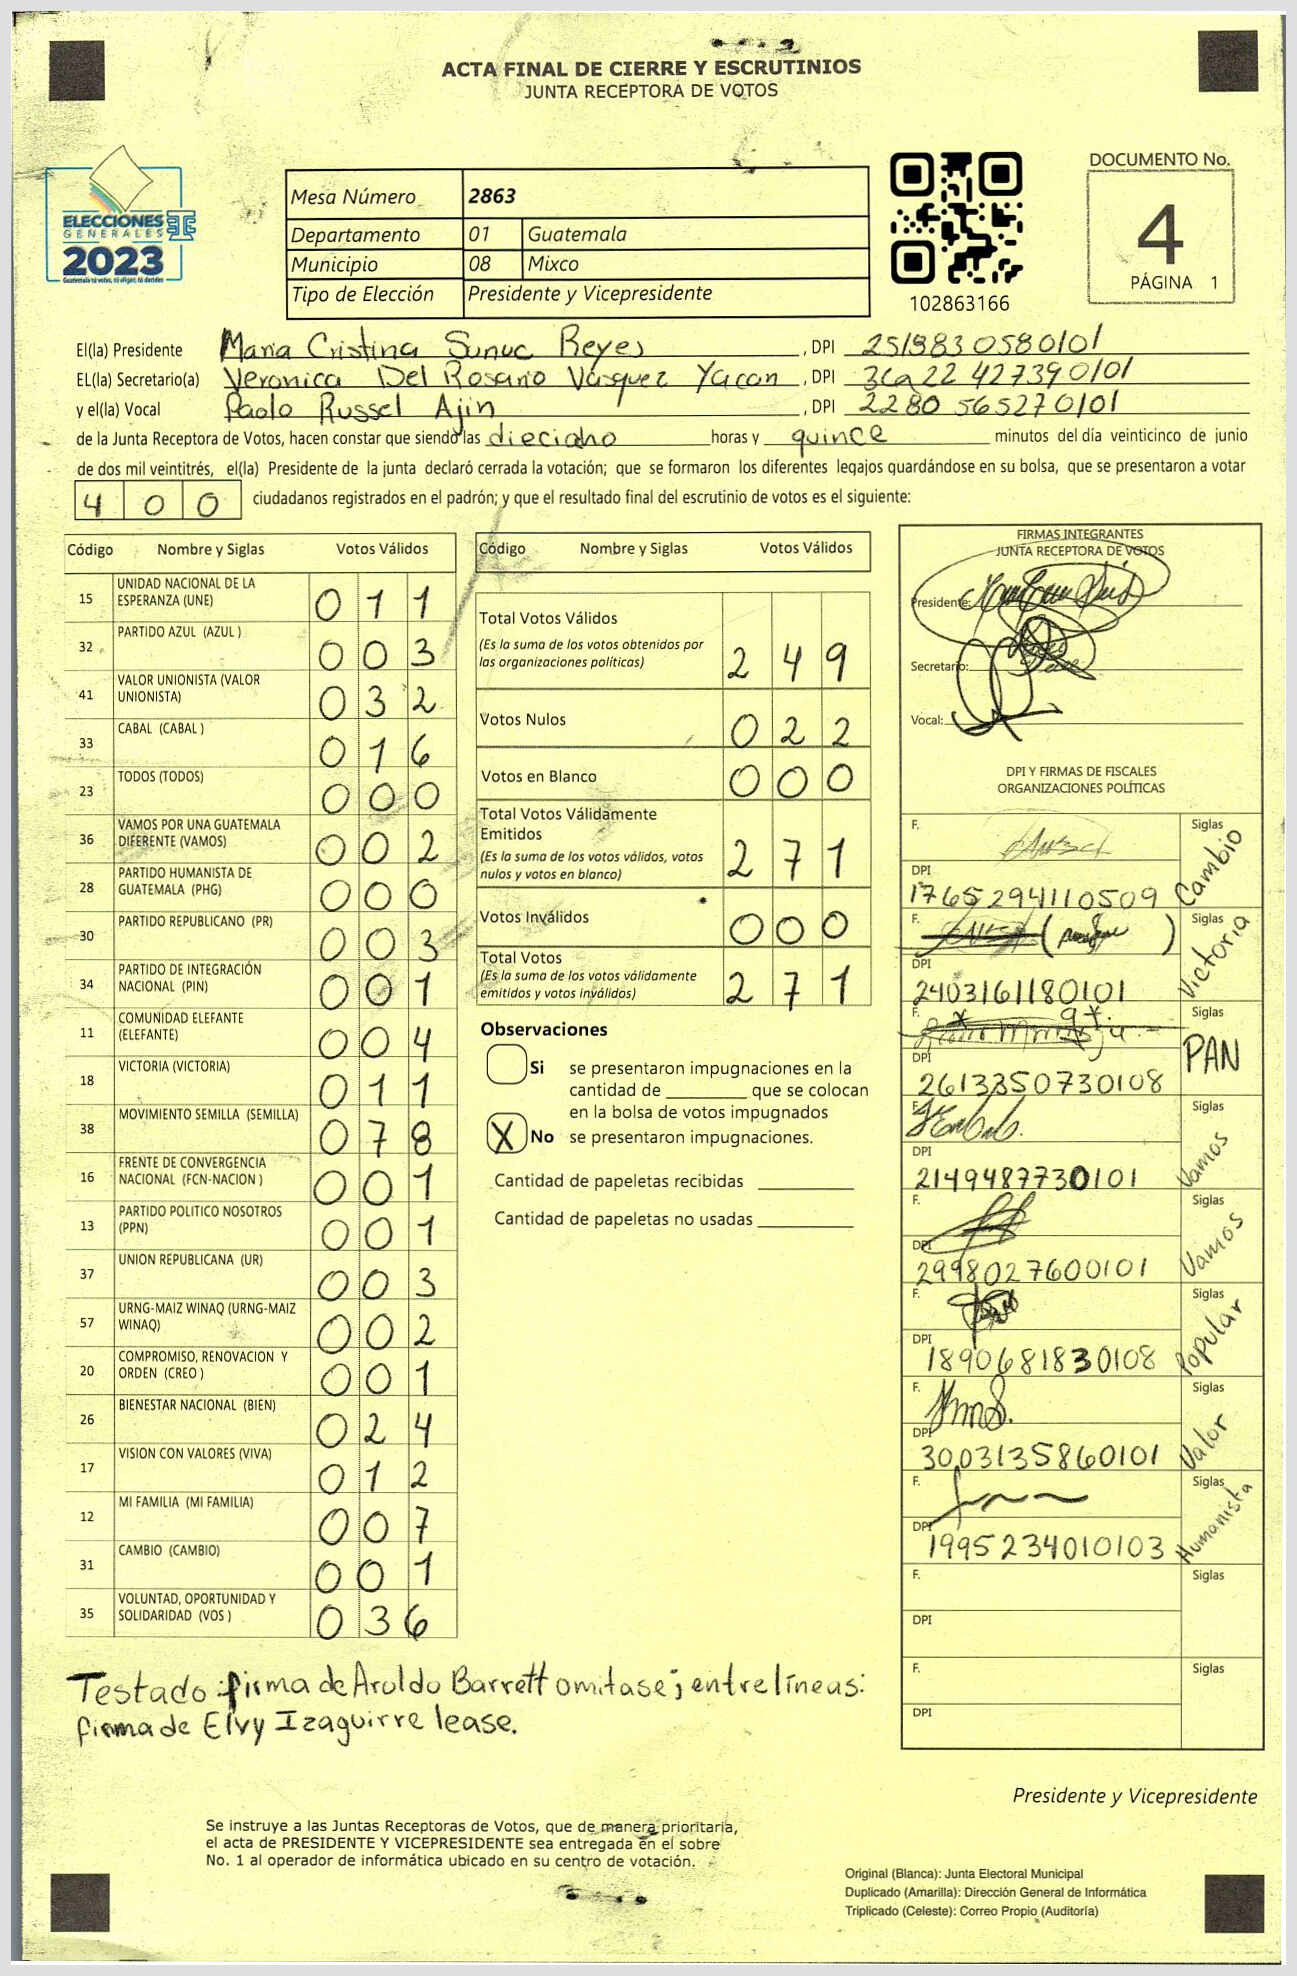 ACTA FINAL DE CIERRE Y ESCRUTINIOS
JUNTA RECEPTORA DE VOTOS
ELECCIONES
GENERALES
2023
Guatemala tú votas, tú eliges, tú decides
Mesa Número 2863
Departamento 01 Guatemala
Municipio 08 Mixco
Tipo de Elección Presidente y Vicepresidente
102863166
DOCUMENTO No.
4
PÁGINA 1
El(la) Presidente Maria Cristina Sunuc Reyes, DPI 2519830580101
EL(la) Secretario(a) Veronica Del Rosario Vásquez Yacon, DPI 22 427390101
y el(la) Vocal Paolo Russel Ajin, DPI 2280 565270101
de la Junta Receptora de Votos, hacen constar que siendo las horas y quince minutos del día veinticinco de junio
de dos mil veintitrés, el(la) Presidente de la junta declaró cerrada la votación; que se formaron los diferentes legajos guardándose en su bolsa, que se presentaron a votar
400 ciudadanos registrados en el padrón; y que el resultado final del escrutinio de votos es el siguiente:
Código Nombre y Siglas Votos Válidos
15 UNIDAD NACIONAL DE LA ESPERANZA (UNE) 011
32 PARTIDO AZUL (AZUL ) 003
41 VALOR UNIONISTA (VALOR UNIONISTA) 032
33 CABAL (CABAL ) 016
23 TODOS (TODOS) 000
36 VAMOS POR UNA GUATEMALA DIFERENTE (VAMOS) 002
28 PARTIDO HUMANISTA DE GUATEMALA (PHG) 000
30 PARTIDO REPUBLICANO (PR) 003
34 PARTIDO DE INTEGRACIÓN NACIONAL (PIN) 001
11 COMUNIDAD ELEFANTE (ELEFANTE) 004
18 VICTORIA (VICTORIA) 011
38 MOVIMIENTO SEMILLA (SEMILLA) 078
16 FRENTE DE CONVERGENCIA NACIONAL (FCN-NACION ) 001
13 PARTIDO POLITICO NOSOTROS (PPN) 001
37 UNION REPUBLICANA (UR) 003
57 URNG-MAIZ WINAQ (URNG-MAIZ WINAQ) 002
20 COMPROMISO, RENOVACION Y ORDEN (CREO ) 001
26 BIENESTAR NACIONAL (BIEN) 024
17 VISION CON VALORES (VIVA) 012
12 MI FAMILIA (MI FAMILIA) 007
31 CAMBIO (CAMBIO) 001
35 VOLUNTAD, OPORTUNIDAD Y SOLIDARIDAD (VOS ) 036
Código Nombre y Siglas Votos Válidos
Total Votos Válidos
(Es la suma de los votos obtenidos por
las organizaciones políticas) 249
Votos Nulos 022
Votos en Blanco 000
Total Votos Válidamente
Emitidos
(Es la suma de los votos válidos, votos
nulos y votos en blanco) 271
Votos Inválidos 000
Total Votos
(Es la suma de los votos válidamente
emitidos y votos inválidos) 271
Observaciones
Si se presentaron impugnaciones en la
cantidad de ________ que se colocan
en la bolsa de votos impugnados
X No se presentaron impugnaciones.
Cantidad de papeletas recibidas
Cantidad de papeletas no usadas
FIRMAS INTEGRANTES
JUNTA RECEPTORA DE VOTOS
Presidente:
Secretario:
Vocal:
DPI Y FIRMAS DE FISCALES
ORGANIZACIONES POLÍTICAS
F. Siglas Cambio
DPI 1765294110509
F. Siglas Victoria
DPI 2403161180101
F. Siglas PAN
DPI 2613350730108
F. Siglas Vamos
DPI 2149487730101
F. Siglas Vamos
DPI 2998027600101
F. Siglas Popular
DPI 1890681830108
F. Siglas Valor
DPI 3003135860101
F. Siglas Humanista
DPI 1995234010103
F. Siglas
DPI
F. Siglas
DPI
Testado firma de Aroldo Barrett omitase; entre líneas:
firma de Elvy Izaguirre lease.
Presidente y Vicepresidente
Se instruye a las Juntas Receptoras de Votos, que de manera prioritaria,
el acta de PRESIDENTE Y VICEPRESIDENTE sea entregada en el sobre
No. 1 al operador de informática ubicado en su centro de votación.
Original (Blanca): Junta Electoral Municipal
Duplicado (Amarilla): Dirección General de Informática
Triplicado (Celeste): Correo Propio (Auditoría)